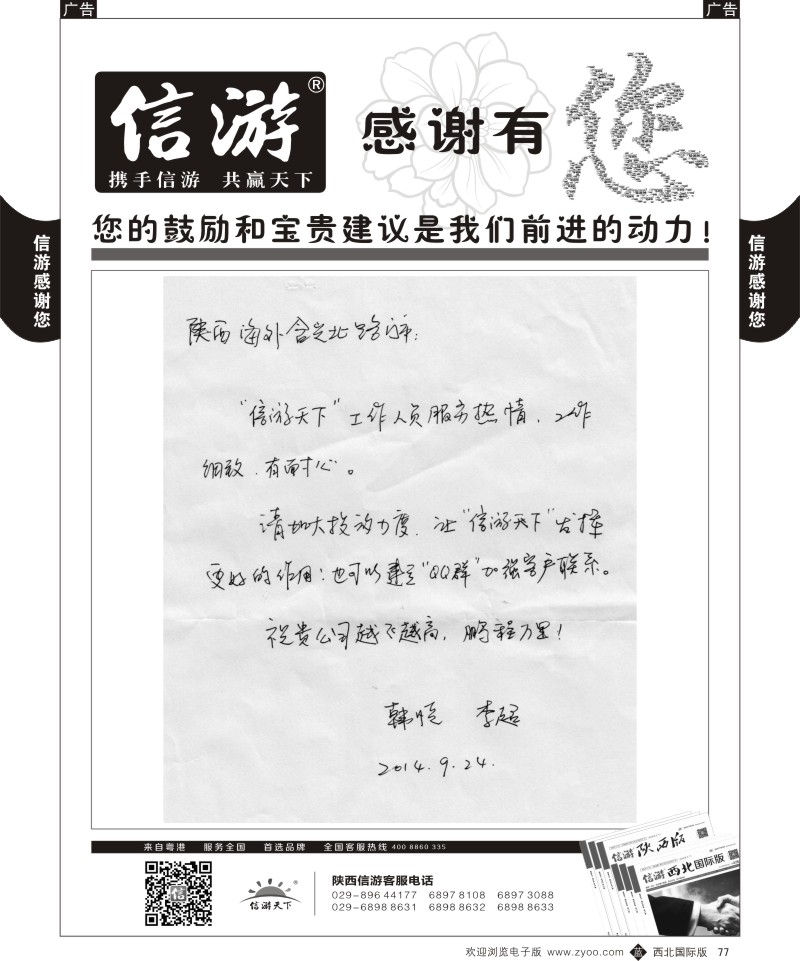 广告
广告
信游®
携手信游 共赢天下
感谢有您
您的鼓励和宝贵建议是我们前进的动力!
信游感谢您
信游感谢您
陕西海外含光北路门市:
“信游天下”工作人员服务热情,工作
细致,有耐心。
请加大投放力度,让“信游天下”发挥
更好的作用;也可以建立“QQ群”加强客户联系。
祝贵公司越飞越高,鹏程万里!
韩悦 李超
2014.9.24.
来自粤港 服务全国 首选品牌 全国客服热线 400 8860 335
信游 陕西版
信游 西北国际版
信游
信游天下
陕西信游客服电话
029-896 44177 6897 8108 6897 3088
029-6898 8631 6898 8632 6898 8633
欢迎浏览电子版 www.zyoo.com 蓝 西北国际版 77